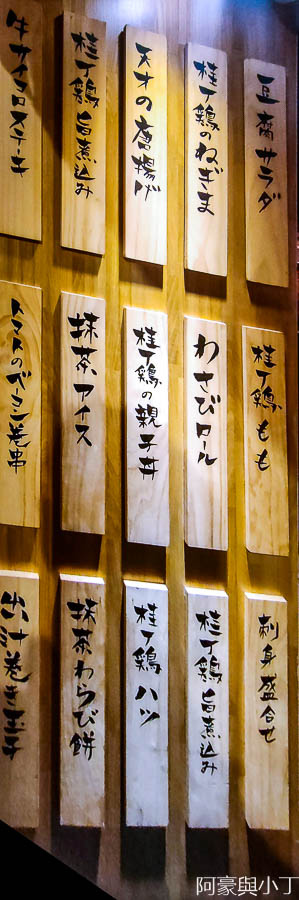 豆腐サラダ
桂丁鶏のねぎま
天才の唐揚げ
桂丁鶏旨煮込み
牛サイコロステーキ
桂丁鶏もも
わさびロール
桂丁鶏の親子丼
抹茶アイス
トマトのベーコン巻串
刺身盛合せ
桂丁鶏旨煮込み
桂丁鶏ハツ
抹茶わらび餅
出汁巻き玉子
阿豪與小丁